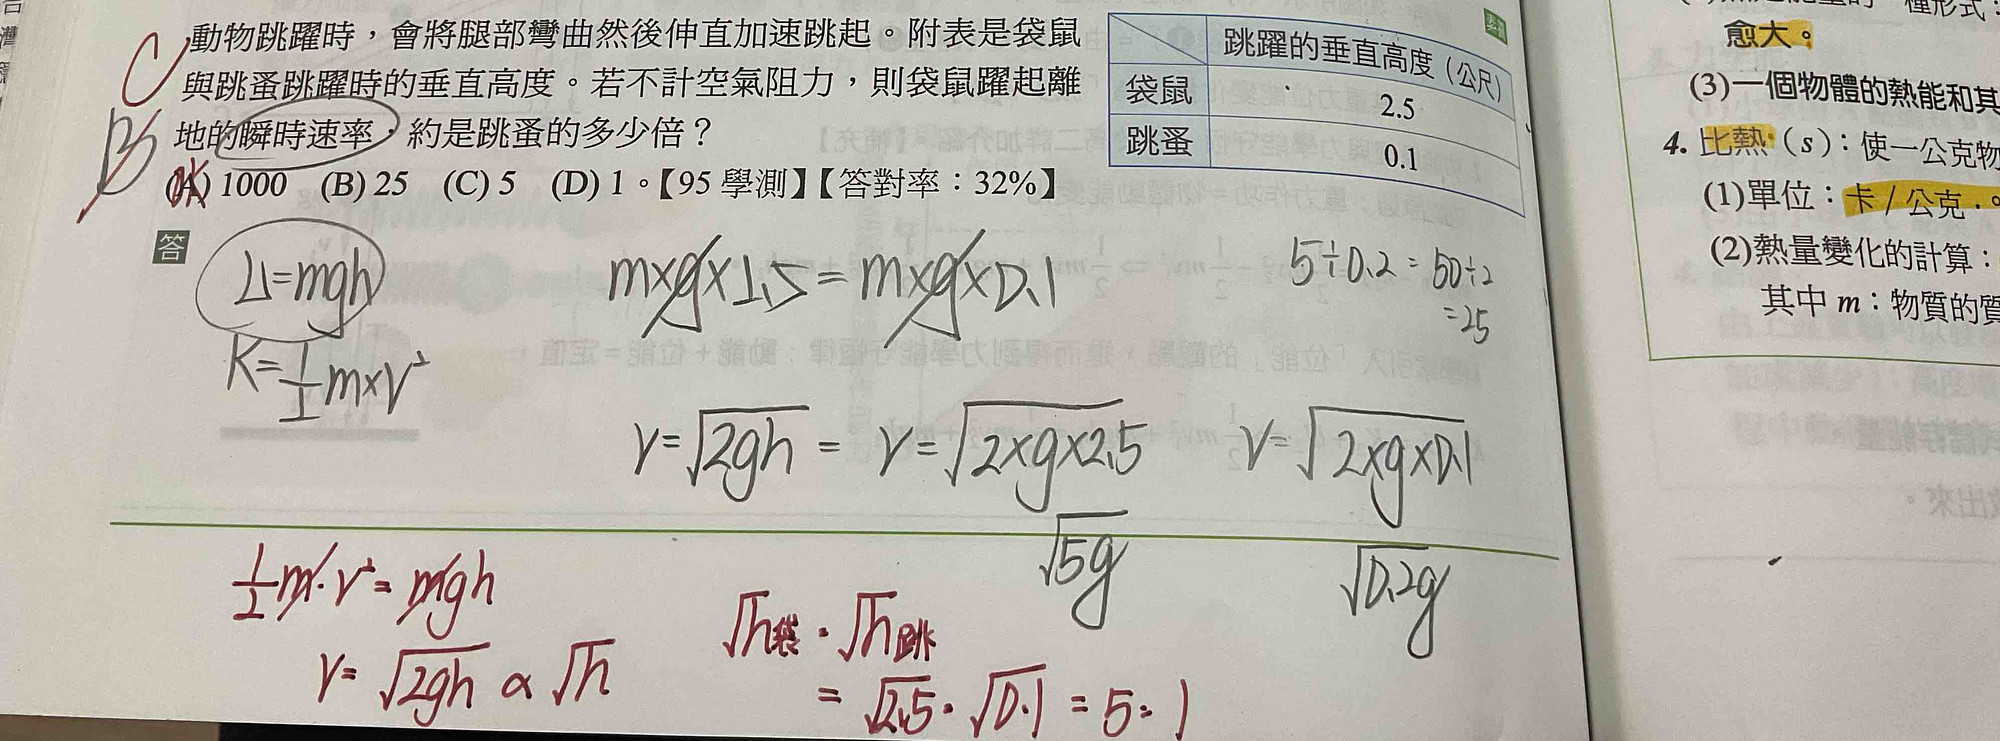 C
B
動物跳躍時，會將腿部彎曲然後伸直加速跳起。附表是袋鼠
與跳蚤跳躍時的垂直高度。若不計空氣阻力，則袋鼠躍起離
地的瞬時速率，約是跳蚤的多少倍？
(A) 1000 (B) 25 (C) 5 (D) 1。【95 學測】【答對率：32%】
跳躍的垂直高度（公尺）
袋鼠 2.5
跳蚤 0.1
答
U=mgh
K=1/2 m×v²
m×g×2.5=m×g×0.1
5÷0.2=50÷2
=25
v=√2gh = v=√2×g×2.5 v=√2×g×0.1
√5g √0.2g
1/2 m·v²=mgh
v=√2gh ∝ √h
√h袋:√h跳
=√2.5:√0.1=5:1
愈大。
(3)一個物體的熱能和其
4. 比熱（s）：使一公克物
(1)單位：卡／公克．
(2)熱量變化的計算：
其中 m：物質的質